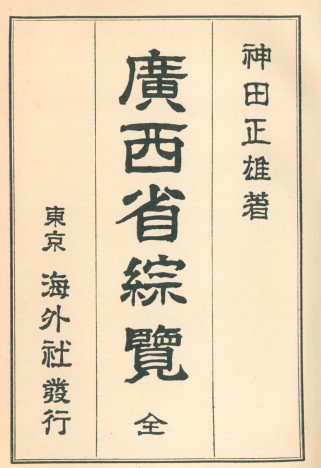 神田正雄著
廣西省綜覽 全
東京 海外社發行